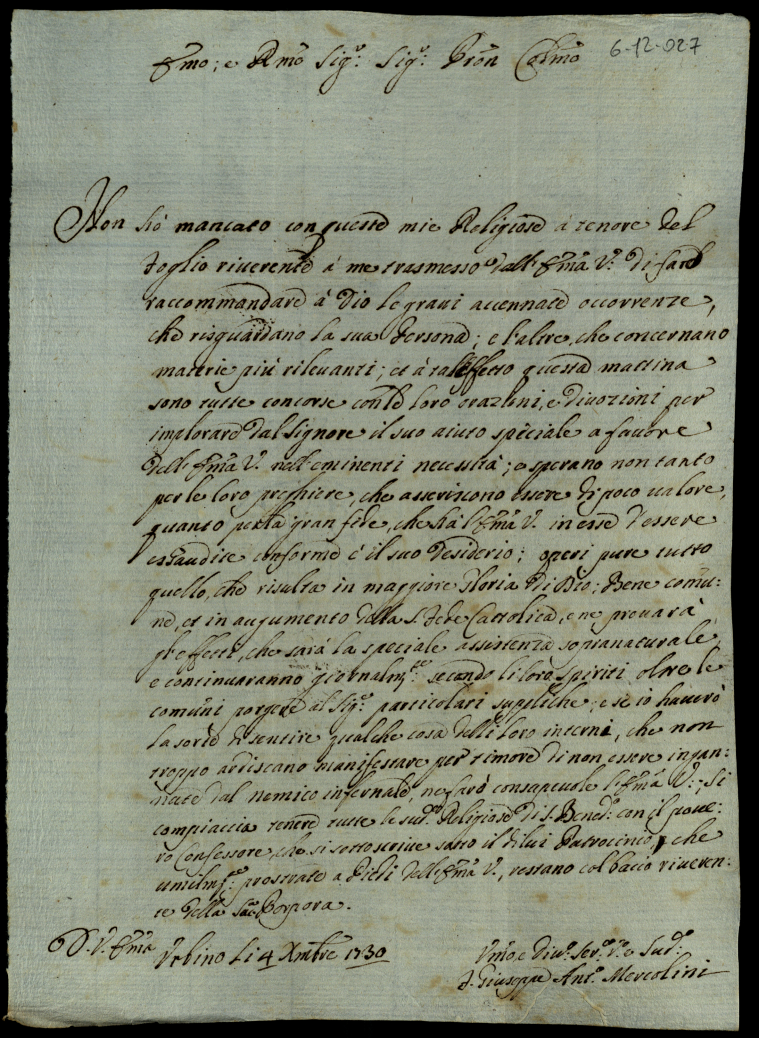 Emo; e Rmo Sigr: Sigr: Pron Colmo
6-12-027
Non hò mancato con queste mie Religiose à tenore del
foglio riverente à me trasmesso dall' Emã V. di farle
raccommandare à Dio le gravi accennate occorrenze,
che risguardano la sua Persona; e l'altre, che concernano
materie più rilevanti; et à tal effetto questa mattina
sono tutte concorse con le loro orazioni, e divozioni per
implorare dal Signore il suo aiuto speciale a favore
dell' Emã V. nell' eminenti necessità; e sperano non tanto
per le loro preghiere, che asseriscono essere di poco valore,
quanto per la gran fede, che hà l'Emã V. in esse d'essere
esaudite conforme è il suo desiderio; operi pure tutto
quello, che risulta in maggiore Gloria di Dio; Bene comu:
ne, et in augumento della S. Fede Cattolica, e ne provarà
gl' effetti, che sarà la speciale assistenza sopranaturale,
e continuaranno giornalmte secondo li loro spiriti oltre le
comuni porgere al Sigre particolari suppliche; e se io haverò
la sorte di sentire qualche cosa delli loro interni, che non
troppo ardiscano manifestare per timore di non essere ingan:
nate dal nemico infernale, ne farò consapevole l'Emã V.; Si
compiaccia tenere tutte le sude Religiose di S. Bened: con il pove:
ro Confessore, che si sottoscrive sotto il di lui Patrocinio, che
umilmte prostrate a Piedi dell' Emã V., restano col bacio riveren:
te della Sac: Porpora.
D. V. Emã
Urbino li 4 Xmbre 1730
Umo e Divo Servo Vo e Sudo
F. Giuseppe Anto Mercolini